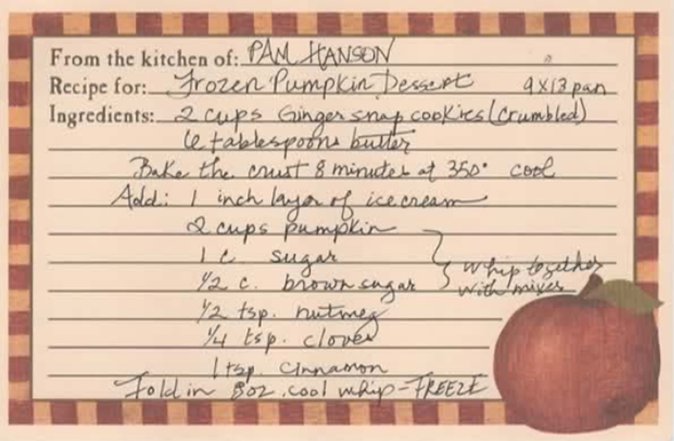 From the kitchen of: PAM HANSON
Recipe for: Frozen Pumpkin Dessert 9X13 pan
Ingredients: 2 cups Ginger snap cookies (crumbled)
6 tablespoons butter
Bake the crust 8 minutes at 350° cool
Add: 1 inch layer of ice cream
2 cups pumpkin
1 c. sugar
whip together
1/2 c. brown sugar
with mixer
1/2 tsp. nutmeg
1/4 tsp. clover
1 tsp. Cinnamon
Fold in 8oz. cool whip - FREEZE